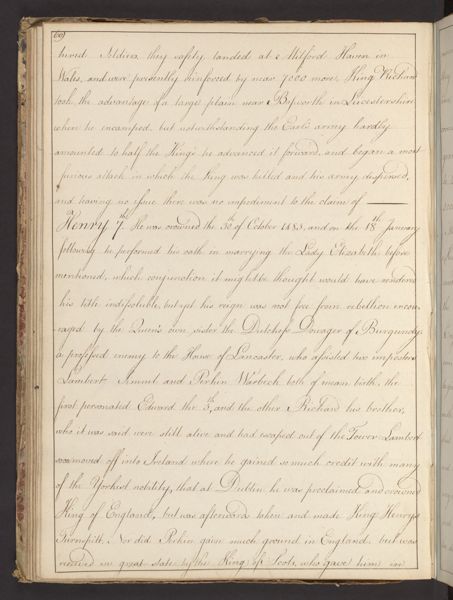 60
hired Soldiers they safely landed at Milford Haven in
Wales, and were presently reinforced by near 7000 more, King Richard
took the advantage of a large plain near Bosworth in Leicestershire
where he encamped, but notwithstanding the Earl's army hardly
amounted to half the King's he advanced it forward, and began a most
furious attack in which the King was killed and his army dispersed,
and leaving no issue there was no impediment to the claim of
Henry 7th He was crowned the 30th of October 1485, and on the 18th January
following he performed his oath in marrying the Lady Elizabeth before
mentioned, which conjunction it might be thought would have rendered
his title indissoluble, but yet his reign was not free from rebellion encou-
raged by the Queen's own sister the Dutchess Dowager of Burgundy
a professed enemy to the House of Lancaster, who assisted two impostors
Lambert and Perkin Warbeck both of mean birth, the
first personated Edward the 5th, and the other Richard his brother,
who it was said were still alive and had escaped out of the Tower Lambert
moved off into Ireland where he gained so much credit with many
of the Yorkist nobility, that at Dublin he was proclaimed and crowned
King of England, but was afterwards taken and made King Henry's
Turnspitt, Nor did Perkin gain much ground in England, but was
received in great state by the King of Scots, who gave him in